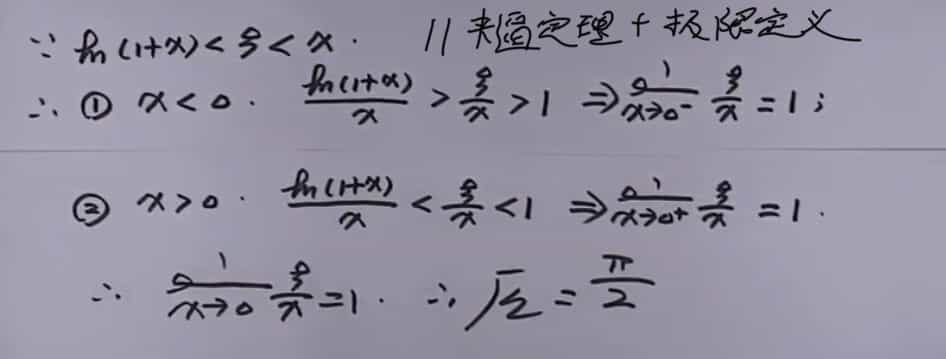 ∵ ln(1+x) < ξ < x. // 夹逼定理 + 极限定义
∴ ① x < 0. ln(1+x)/x > ξ/x > 1 ⇒ lim x→0⁻ ξ/x = 1;
② x > 0. ln(1+x)/x < ξ/x < 1 ⇒ lim x→0⁺ ξ/x = 1.
∴ lim x→0 ξ/x = 1. ∴ 原式 = π/2